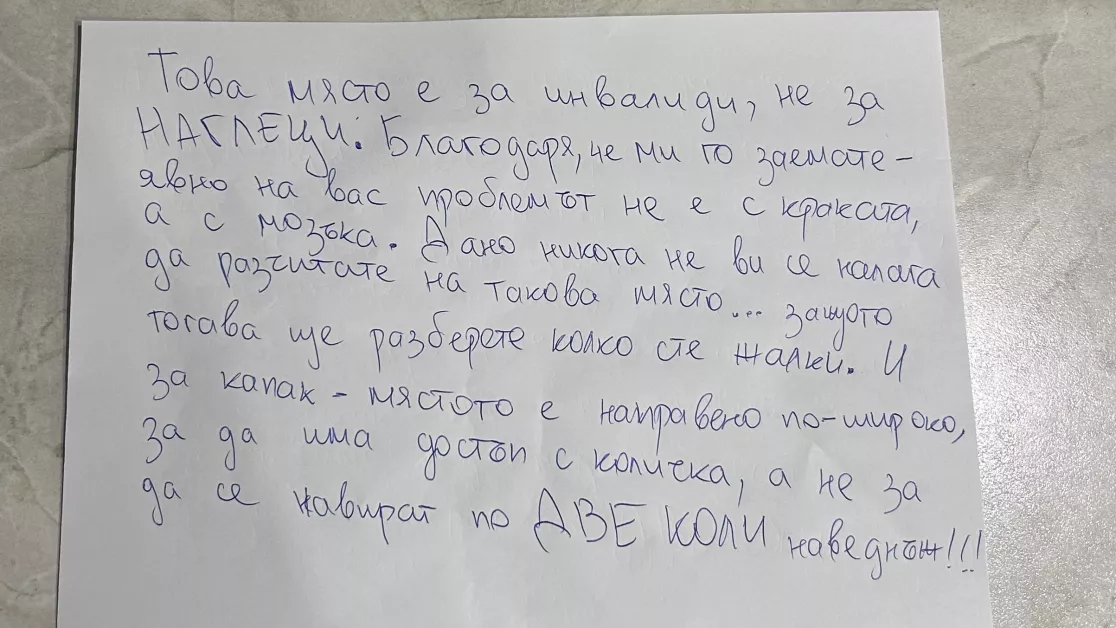 Това място е за инвалиди, не за
НАГЛЕЦИ. Благодаря, че ми го заемате –
явно на вас проблемът не е с краката,
а с мозъка. Дано никога не ви се налага
да разчитате на такова място... защото
тогава ще разберете колко сте жалки. И
за капак – мястото е направено по-широко,
за да има достъп с количка, а не за
да се навират по ДВЕ КОЛИ наведнъж!!!